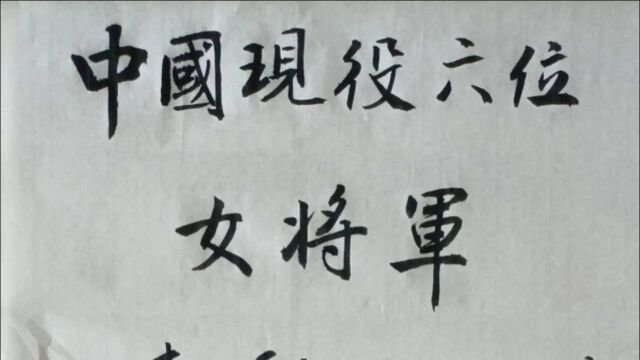 中國現役六位
女将軍